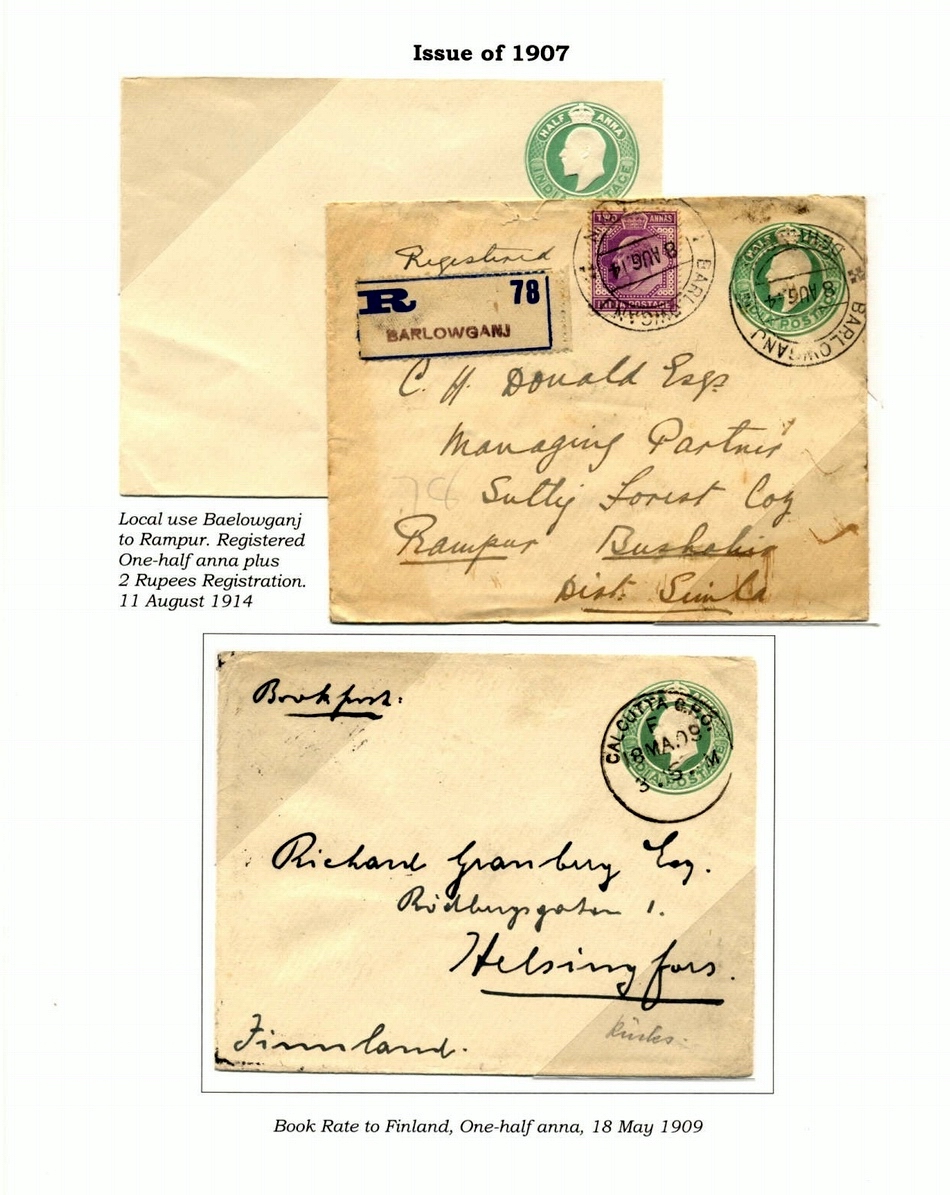 Issue of 1907
HALF ANNA
INDIA POSTAGE
Registered
R 78
BARLOWGANJ
TWO ANNAS
POSTAGE
BARLOWGANJ
8 AUG.14
HALF
INDIA POSTAGE
BARLOWGANJ
8 AUG.14
C. H. Donald Esqr
Managing Partner
Sutlej Forest Coy
Rampur Bushahir
Dist. Simla
Local use Baelowganj
to Rampur. Registered
One-half anna plus
2 Rupees Registration.
11 August 1914
Bookpost.
CALCUTTA G.P.O.
F
18 MA.09
3. S. M
INDIA POSTAGE
Richard Granberg Esq.
Rödbergsgatan 1.
Helsingfors.
Finnland.
Book Rate to Finland, One-half anna, 18 May 1909